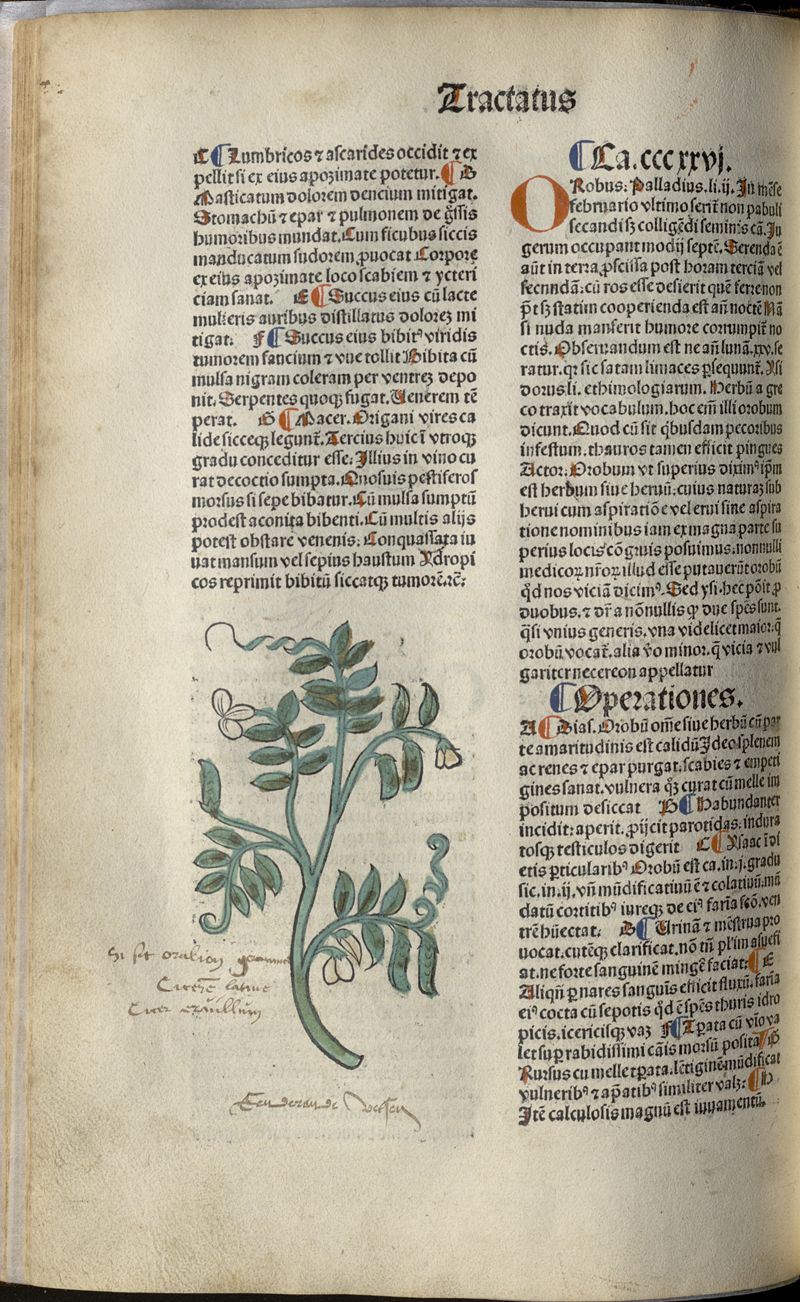 Tractatus
C ¶ Lumbricos ⁊ ascarides occidit ⁊ ex
pellit si ex eius apozimate potetur. ¶ D
Masticatum dolorem dencium mitigat.
Stomachū ⁊ epar ⁊ pulmonem de g̃ssis
humoribus mundat. Cum ficubus siccis
manducatum sudorem ꝓuocat Corpore
ex eius apozimate loco scabiem ⁊ ycteri
ciam sanat. E ¶ Succus eius cū lacte
mulieris auribus distillatus doloreꝫ mi
tigat. F ¶ Succus eius bibitꝰ viridis
tumorem faucium ⁊ vue tollit Bibita cū
mulsa nigram coleram per ventreꝫ depo
nit. Serpentes quoqꝫ fugat. Uenerem tē
perat. G ¶ Macer. Origani vires ca
lide sicceqꝫ legunt᷑. Tercius huic ī vtroqꝫ
gradu conceditur esse: Illius in vino cu
rat decoctio sumpta. Quosuis pestiferos
morsus si sepe bibatur. Cū mulsa sumptū
prodest aconita bibenti. Cū multis alijs
potest obstare venenis: Conquassata iu
uat mansum vel sepius haustum Ydropi
cos reprimit bibitū siccatqꝫ tumorē. ⁊c̃:
Cicer
¶ Ca. cccxxvj.
ORobus: Palladius. li. ij. In mēse
februario vltimo serit᷑ non pabuli
secandi sꝫ colligēdi seminis cā. Iu
gerum occupant modij septē. Serenda ē
aūt in terra ꝓscissa post horam terciā vel
secundā: cū ros esse desierit quē ferre non
p̄t sꝫ statim cooperienda est añ noctē Nā
si nuda manserit humore corrumpit᷑ no
ctis. Obseruandum est ne añ lunā. xxv. se
ratur. qꝛ sic satam limaces ꝑsequunt᷑. Ysi
dorus. li. ethimologiarum. Herbū a gre
co traxit vocabulum. hoc em̄ illi orobum
dicunt. Quod cū sit q̇busdam pecoribus
infestum. thauros tamen efficit pingues
Actor: Orobum vt superius diximꝰ ip̄m
est herbum siue heruū: cuius naturaꝫ sub
herui cum aspiratiōe vel erui sine aspira
tione nominibus iam ex magna parte su
perius locis cōgruis posuimus: nonnulli
medicoꝝ nr̄oꝝ illud esse putauerūt orobū
qd̄ nos viciā dicimꝰ. Sed ysi. hec pōit ꝓ
duobus. ⁊ dr̄ a nōnullis ꝙ due spēs sunt.
q̄si vnius generis. vna videlicet maior: q̄
orobū vocat᷑. alia v̄o minor. q̄ vicia ⁊ vul
gariter necereon appellatur
¶ Operationes.
A ¶ Dias. Orobū om̄e siue herbū cū par
te amaritudinis est calidū Ideo splenem
ac renes ⁊ epar purgat. scabies ⁊ empeti
gines sanat. vulnera q̄ꝫ curat cū melle im
positum desiccat B ¶ Habundanter
incidit: aperit. ꝓijcit parotidas. indura
tosqꝫ testiculos digerit C ¶ Ysaac ī di
etis ꝑticularibꝰ Orobū est ca. in. j. gradu
sic. in. ij. vñ mūdificatiuū ē ⁊ colatiuū. mū
datū corticibꝰ iureqꝫ de eiꝰ farīa fcō. ven
trē hūectat: D ¶ Urinā ⁊ mēstrua pro
uocat. cutēqꝫ clarificat. nō tn̄ plīm assuesi
at. ne forte sanguinē mingē faciat: ¶ E
Aliqñ ꝑ nares sanguīs efficit fluxū. farīa
eiꝰ cocta cū sepotis qd̄ ē spēs thuris idro
picis. ictericisqꝫ vaꝫ F ¶ Tꝑata cū vīo va
let suꝑ rabidissimi cāis morsū posita ¶ G
Rursus cū melle tꝑata. lētiginē mūdificat
vulneribꝰ ⁊ apatibꝰ similiter valꝫ: ¶ H
Itē calculosis magnū est iuuamentū.